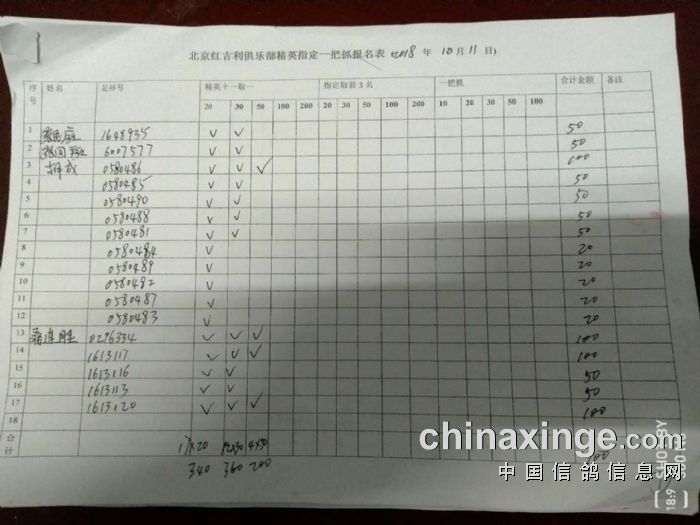 北京红吉利俱乐部精英指定一把抓报名表 2018 年 10 月 11 日)
序号 姓名 足环号 精英十一取一 指定取前3名 一把抓 合计金额 备注
20 30 50 100 200 20 30 50 100 200 10 20 30 50 100
1 1648935 ✓ ✓ 50
2 6007577 ✓ ✓ 50
3 0580486 ✓ ✓ ✓ 100
4 0580485 ✓ ✓ 50
5 0580490 ✓ ✓ 50
6 0580488 ✓ ✓ 50
7 0580481 ✓ ✓ 50
8 0580484 ✓ 20
9 0580489 ✓ 20
10 0580482 ✓ 20
11 0580487 ✓ 20
12 0580483 ✓ 20
13 0296334 ✓ ✓ ✓ 100
14 1613117 ✓ ✓ ✓ 100
15 1613116 ✓ ✓ 50
16 1613113 ✓ ✓ 50
17 1613120 ✓ ✓ ✓ 100
18
合计 17×20 12×30 4×50
340 360 200
chinaxinge.com
中国信鸽信息网
SHOT BY